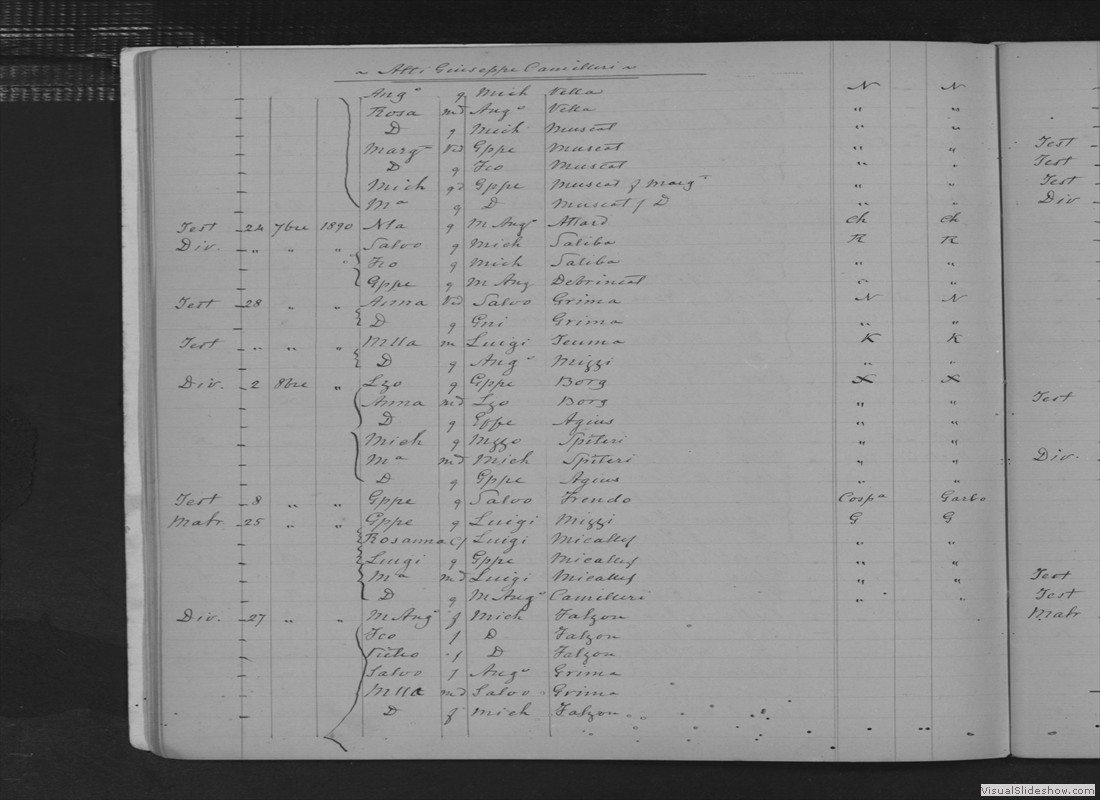 ~ Atti Giuseppe Camilleri ~
Ango q Mich Vella N N
Rosa md Ango Vella " "
D q Mich Muscat " "
Marga Vd Gppe Muscat " "
D q Fco Muscat " "
Mich qd Gppe Muscat f Marga " "
Ma q D Muscat f D " "
Test 24 7bre 1890 Nta q M Ango Attard Ch Ch
Div. " " " Salvo q Mich Saliba R R
" Fco q Mich Saliba " "
Gppe q M Ang Debrincat " "
Test 28 " " Anna Vd Salvo Grima N N
D q Gni Grima " "
Test " " " Mlla m Luigi Teuma K K
D q Ango Mizzi " "
Div. 2 8bre " Lzo q Gppe Borg X X
Anna md Lzo Borg " "
D q Gppe Agius " "
Mich q Nzzo Spiteri " "
Ma md Mich Spiteri " "
D q Gppe Agius " "
Test 8 " " Gppe q Salvo Frendo Corpa Garbo
Matr 25 " " Gppe q Luigi Mizzi G G
Rosanna Luigi Micallef " "
Luigi q Gppe Micallef " "
Ma md Luigi Micallef " "
D q M Ango Camilleri " "
Div. 27 " " M Ango f Mich Falzon
Fco f D Falzon
f D Falzon
Salvo f Ango Grima
Mlla md Salvo Grima
D f Mich Falzon
Test
Test
Test
Div
Test
Div.
Test
Test
Matr
VisualSlideshow.com